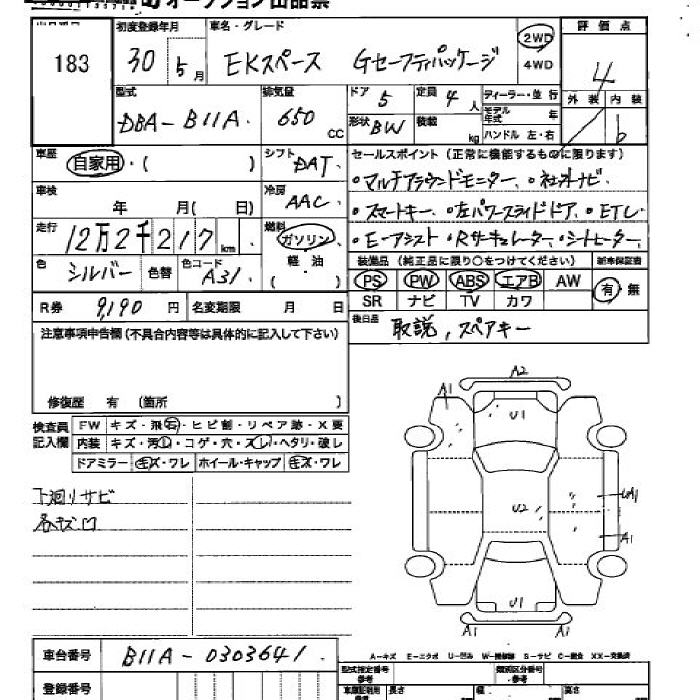 オークション出品票
183
初度登録年月
30 5月
車名・グレード
EKスペース Gセーフティパッケージ
2WD
4WD
評価点
4
外装 内装
b
型式
DBA-B11A
排気量
650 CC
ドア 5
定員 4人
形状 BW
積載 kg
ディーラー・並行
モデル年式 年
ハンドル 左・右
車歴
自家用・( )
シフト
DAT
セールスポイント(正常に機能するものに限ります)
・マルチアラウンドモニター、・社外ナビ
・スマートキー、・左パワースライドドア、・ETC
・E-アシスト ・Rサーキュレーター、・シートヒーター、
車検
年 月( 日)
冷房
AAC
走行
12万2千217km
燃料
ガソリン
軽・油
( )
色
シルバー
色替
色コード
A31
装備品(純正品に限り○をつけてください)
新車保証書
PS PW ABS エアB AW
有 無
SR ナビ TV カワ
R券 9,190 円
名変期限 月 日
後日品
取説, スペアキー
注意事項申告欄(不具合内容等は具体的に記入して下さい)
修復歴 有 (箇所 )
検査員記入欄
FW キズ・飛石・ヒビ割・リペア跡・X要
内装 キズ・汚れ・コゲ・穴・スレ・ヘタリ・破レ
ドアミラー キズ・ワレ ホイール・キャップ キズ・ワレ
下廻りサビ
各キズ凹
A2
A1
U1
U2
UA1
A1
U1
A1
A1
A-キズ E-エクボ U-凹み W-補修跡 S-サビ C-腐食 XX-交換済
車台番号
B11A-0303641
登録番号
型式指定番号
参考
類別区分番号
参考
長さ
幅
高さ